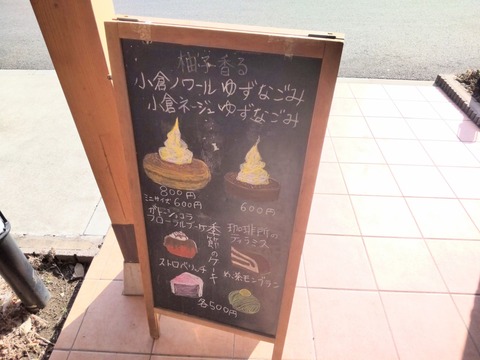 柚子香る
小倉ノワール ゆずなごみ
小倉ネージュ ゆずなごみ
800円
ミニサイズ 600円
600円
季節のケーキ
ガトーショコラ
フローラルブーケ
珈琲所の
ティラミス
ストロベリッチ
めぐり茶モンブラン
各500円